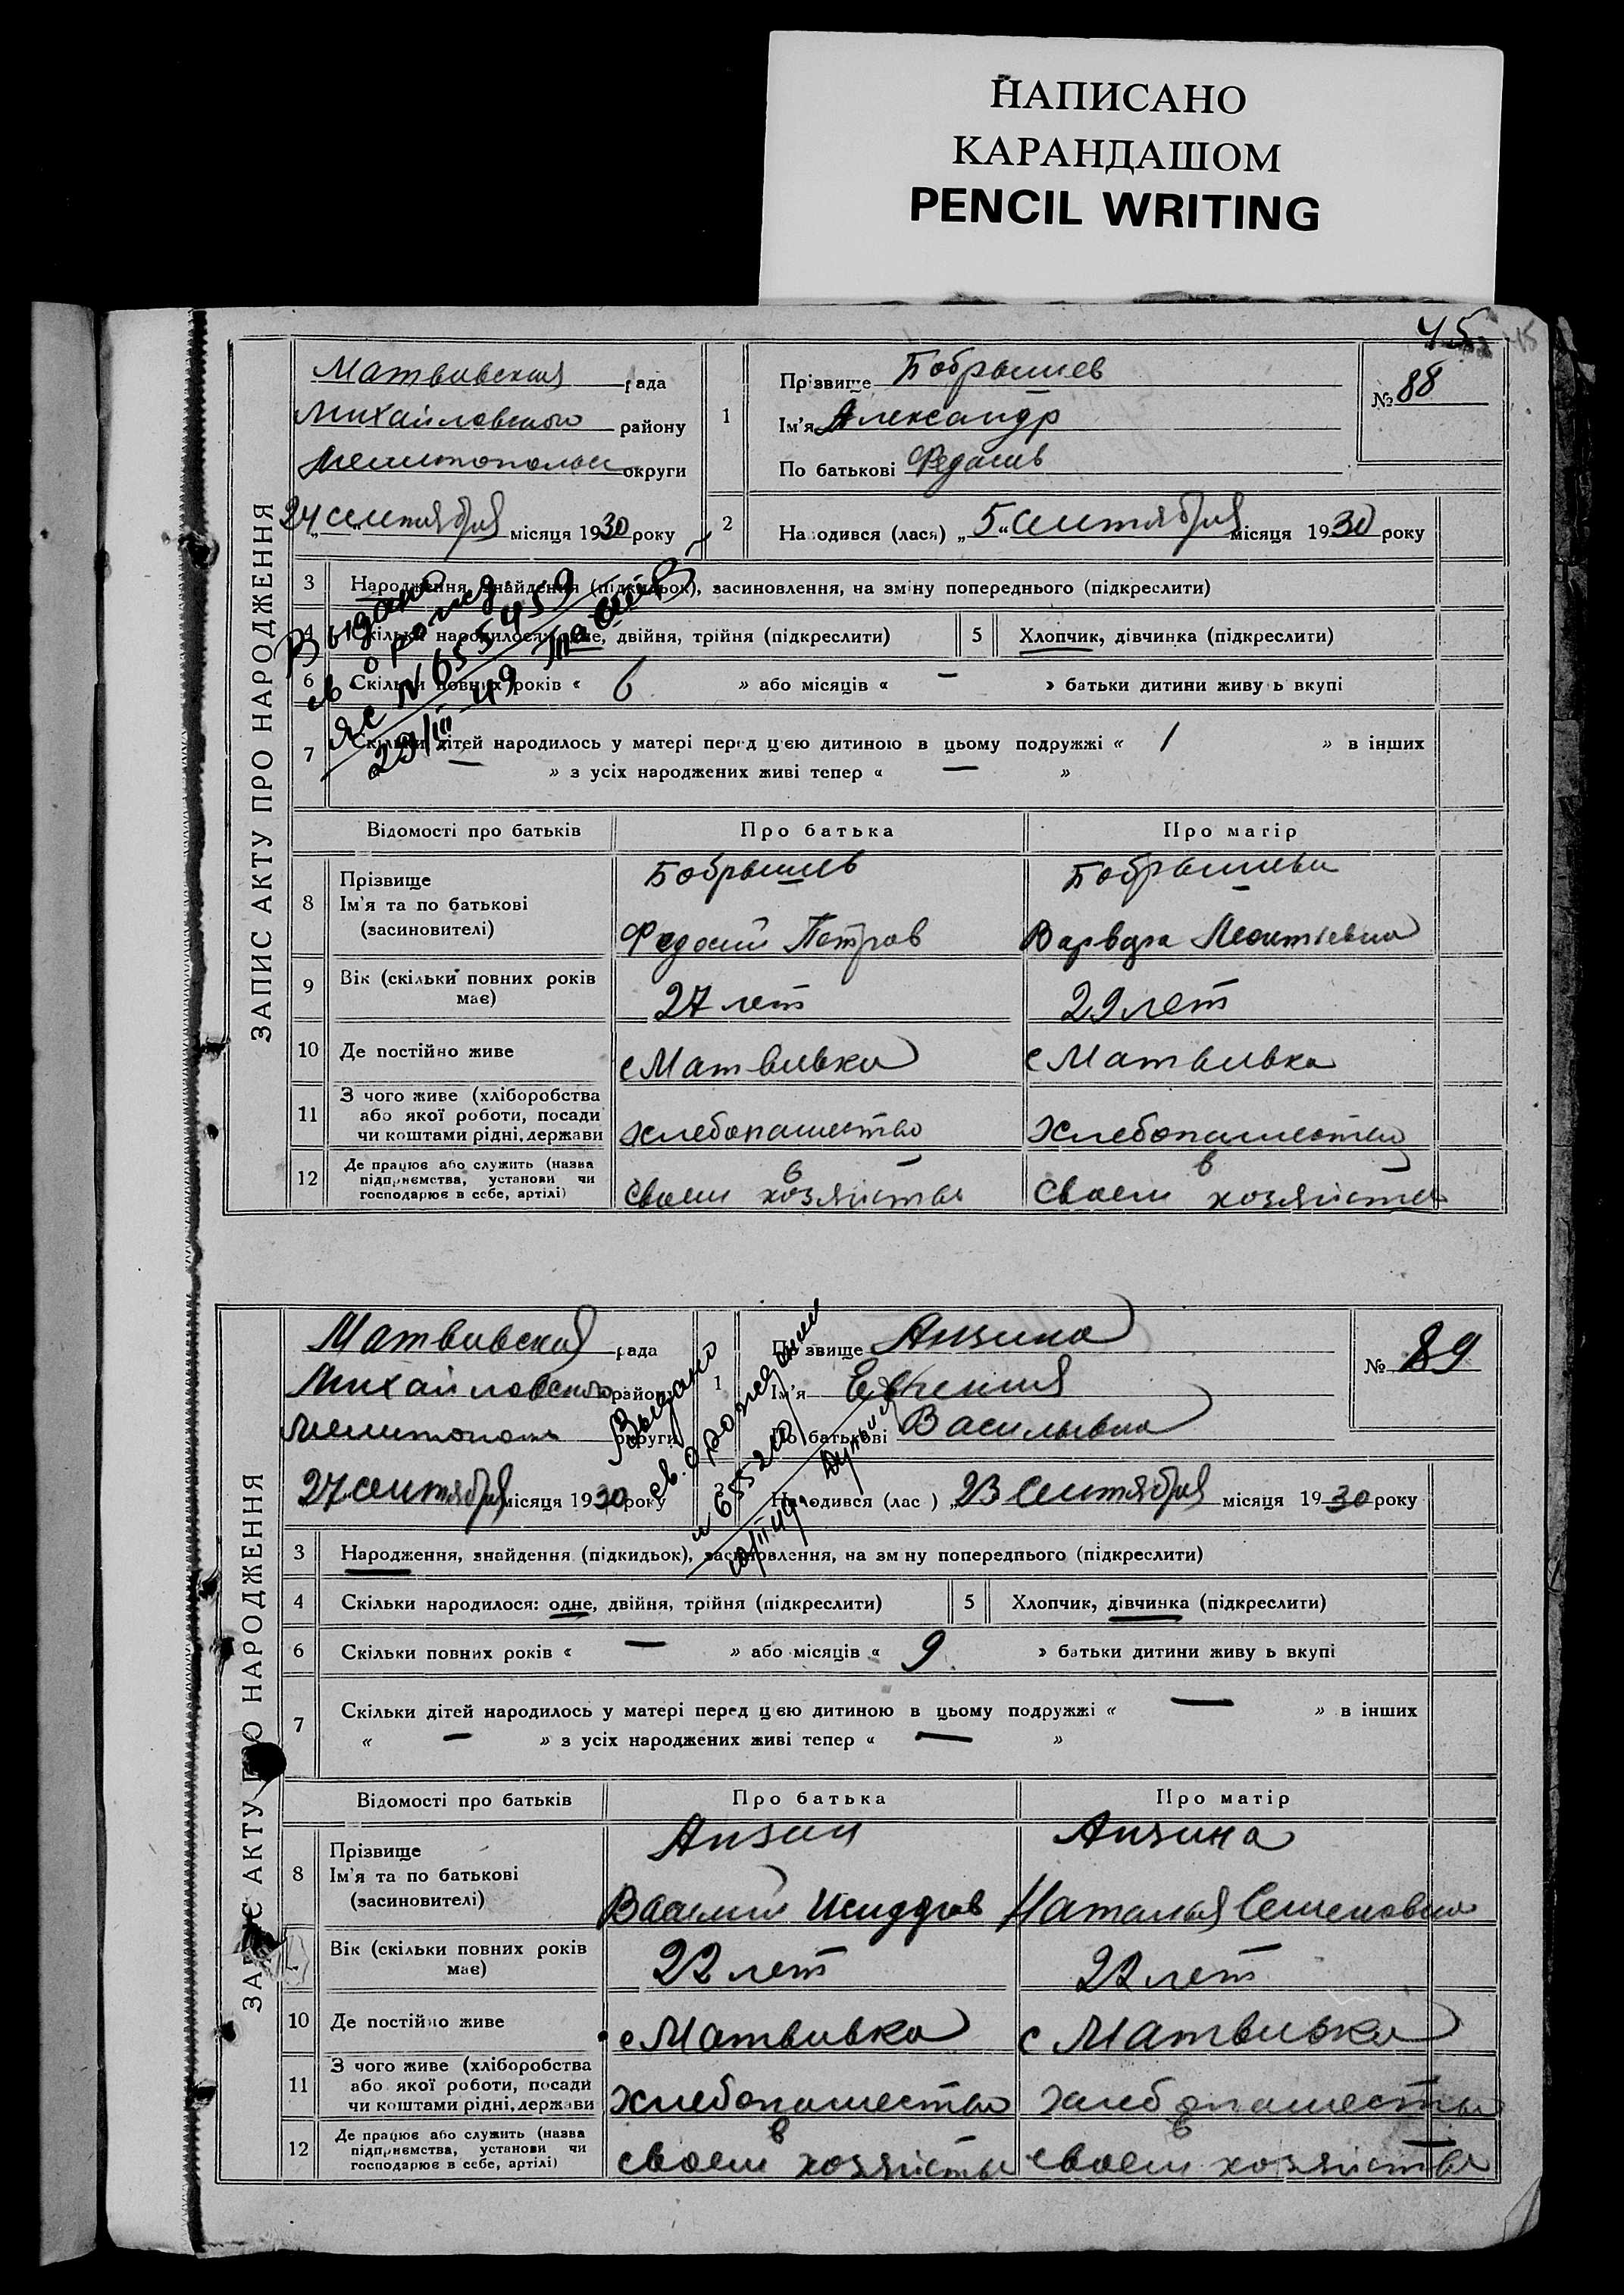 НАПИСАНО
КАРАНДАШОМ
PENCIL WRITING
45
ЗАПИС АКТУ ПРО НАРОДЖЕННЯ
Матвивская рада
Михайловского району
Мелитопольс округи
24 сентября місяця 1930 року
1
Прізвище Бобрышев
Ім'я Александр
По батькові Федосив
№ 88
2 Народився (лася) „5" Сентября місяця 1930 року
3 Народження, знайдення (підкидьок), засиновлення, на зміну попереднього (підкреслити)
4 Скільки народилося: одне, двійня, трійня (підкреслити)
5 Хлопчик, дівчинка (підкреслити)
6 Скільки повних років « 6 » або місяців « — » батьки дитини живуть вкупі
7 Скільки дітей народилось у матері перед цією дитиною в цьому подружжі « 1 » в інших
— » з усіх народжених живі тепер « — »
Выдано
св о рожд
ЯС № 655459
29/III 49
Відомості про батьків Про батька Про матір
8 Прізвище
Ім'я та по батькові
(засиновителі)
Бобрышев
Федосий Петров
Бобрышева
Варвара Леонтьевна
9 Вік (скільки повних років
має)
27 лет
29 лет
10 Де постійно живе
с Матвивка
с Матвивка
11 З чого живе (хліборобства
або якої роботи, посади
чи коштами рідні, держави
хлебопашество
хлебопашество
12 Де працює або служить (назва
підприємства, установи чи
господарює в себе, артілі)
в
своем хозяйстве
в
своем хозяйстве
ЗАПИС АКТУ ПРО НАРОДЖЕННЯ
Матвивская рада
Михайловского району
Мелитополь округи
27 сентября місяця 1930 року
1
Прізвище Анзина
Ім'я Евгения
По батькові Васильевна
№ 89
2 Народився (лас ) „23 Сентября місяця 1930 року
Выдано
св. о рождении
10/II 49
3 Народження, знайдення (підкидьок), засиновлення, на зміну попереднього (підкреслити)
4 Скільки народилося: одне, двійня, трійня (підкреслити)
5 Хлопчик, дівчинка (підкреслити)
6 Скільки повних років « — » або місяців « 9 » батьки дитини живуть вкупі
7 Скільки дітей народилось у матері перед цією дитиною в цьому подружжі « — » в інших
« — » з усіх народжених живі тепер « — »
Відомості про батьків Про батька Про матір
8 Прізвище
Ім'я та по батькові
(засиновителі)
Анзин
Василий Исидоров
Анзина
Наталья Семеновна
Вік (скільки повних років
має)
22 лет
22 лет
10 Де постійно живе
с Матвивка
с Матвивка
11 З чого живе (хліборобства
або якої роботи, посади
чи коштами рідні, держави
хлебопашество
хлебопашество
12 Де працює або служить (назва
підприємства, установи чи
господарює в себе, артілі)
в
своем хозяйстве
в
своем хозяйстве